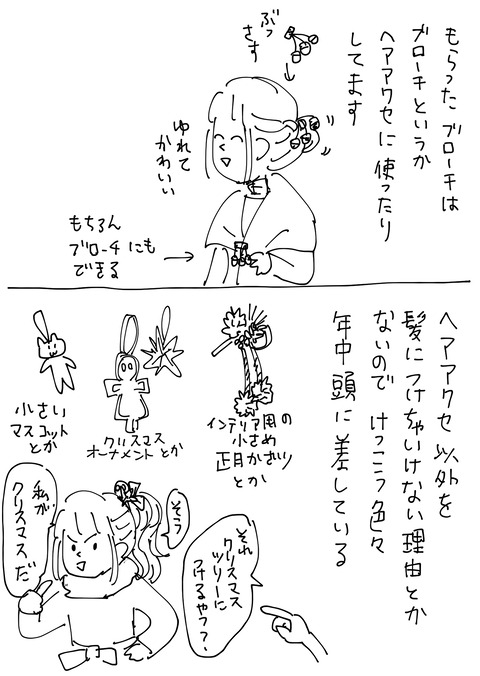 もらった ブローチは
ブローチというか
ヘアアクセに使ったり
してます
ぶっ
さす
ゆれて
かわいい
もちろん
ブローチにも
できる
ヘアアクセ以外を
髪につけちゃいけない理由とか
ないので けっこう色々
年中頭に差している
インテリア用の
小さめ
正月かざり
とか
クリスマス
オーナメントとか
小さい
マスコット
とか
それ
クリスマス
ツリーに
つけるやつ?
そう
私が
クリスマスだ